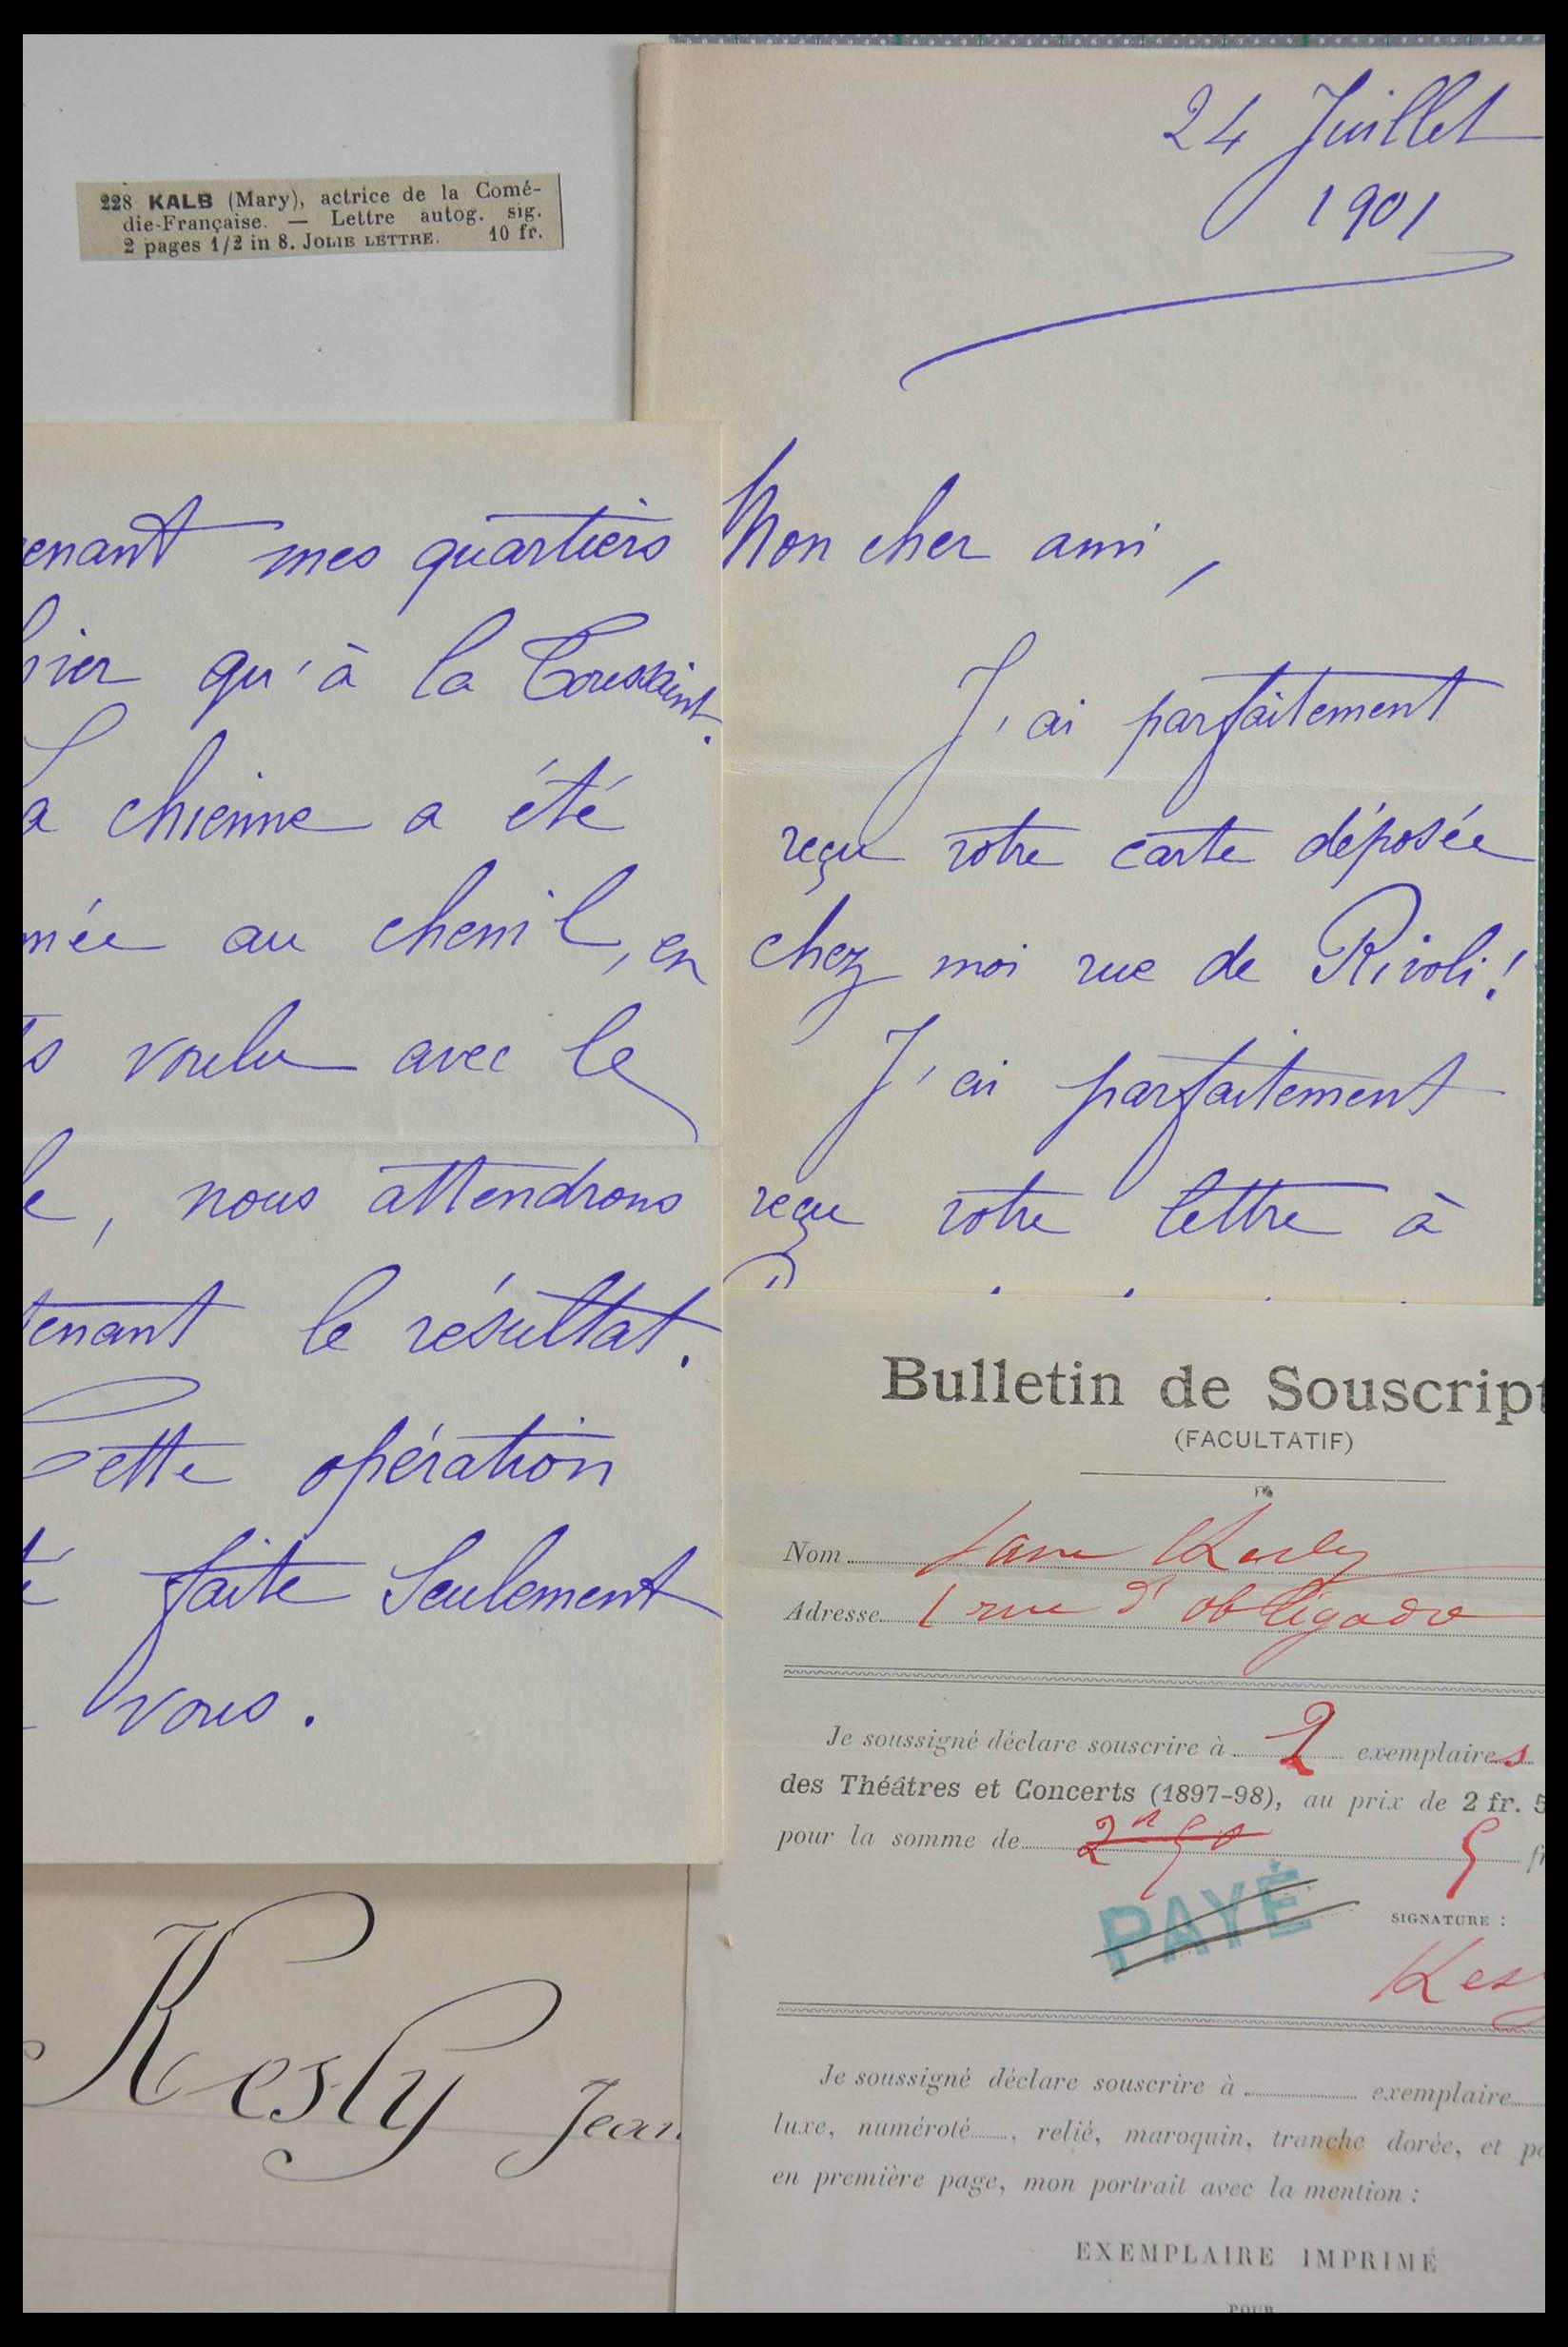 228 KALB (Mary), actrice de la Comé-
die-Française. — Lettre autog. sig.
2 pages 1/2 in 8. JOLIE LETTRE. 10 fr.
24 Juillet
1901
Mon cher ami,
J'ai parfaitement
reçu votre carte déposée
chez moi rue de Rivoli!
J'ai parfaitement
reçu votre lettre à
enant mes quartiers
qu'à la Toussaint.
a chienne a été
née au chenil, en
s voulu avec le
e, nous attendrons
tenant le résultat.
Cette opération
faite seulement
vous.
Bulletin de Souscript
(FACULTATIF)
Nom
Adresse 1 rue d'obligado
Je soussigné déclare souscrire à 2 exemplaires
des Théâtres et Concerts (1897-98), au prix de 2 fr. 5
pour la somme de 5 f
PAYÉ
SIGNATURE :
Kes
Je soussigné déclare souscrire à exemplaire
luxe, numéroté, relié, maroquin, tranche dorée, et p
en première page, mon portrait avec la mention :
EXEMPLAIRE IMPRIMÉ
POUR
Kesly Jean